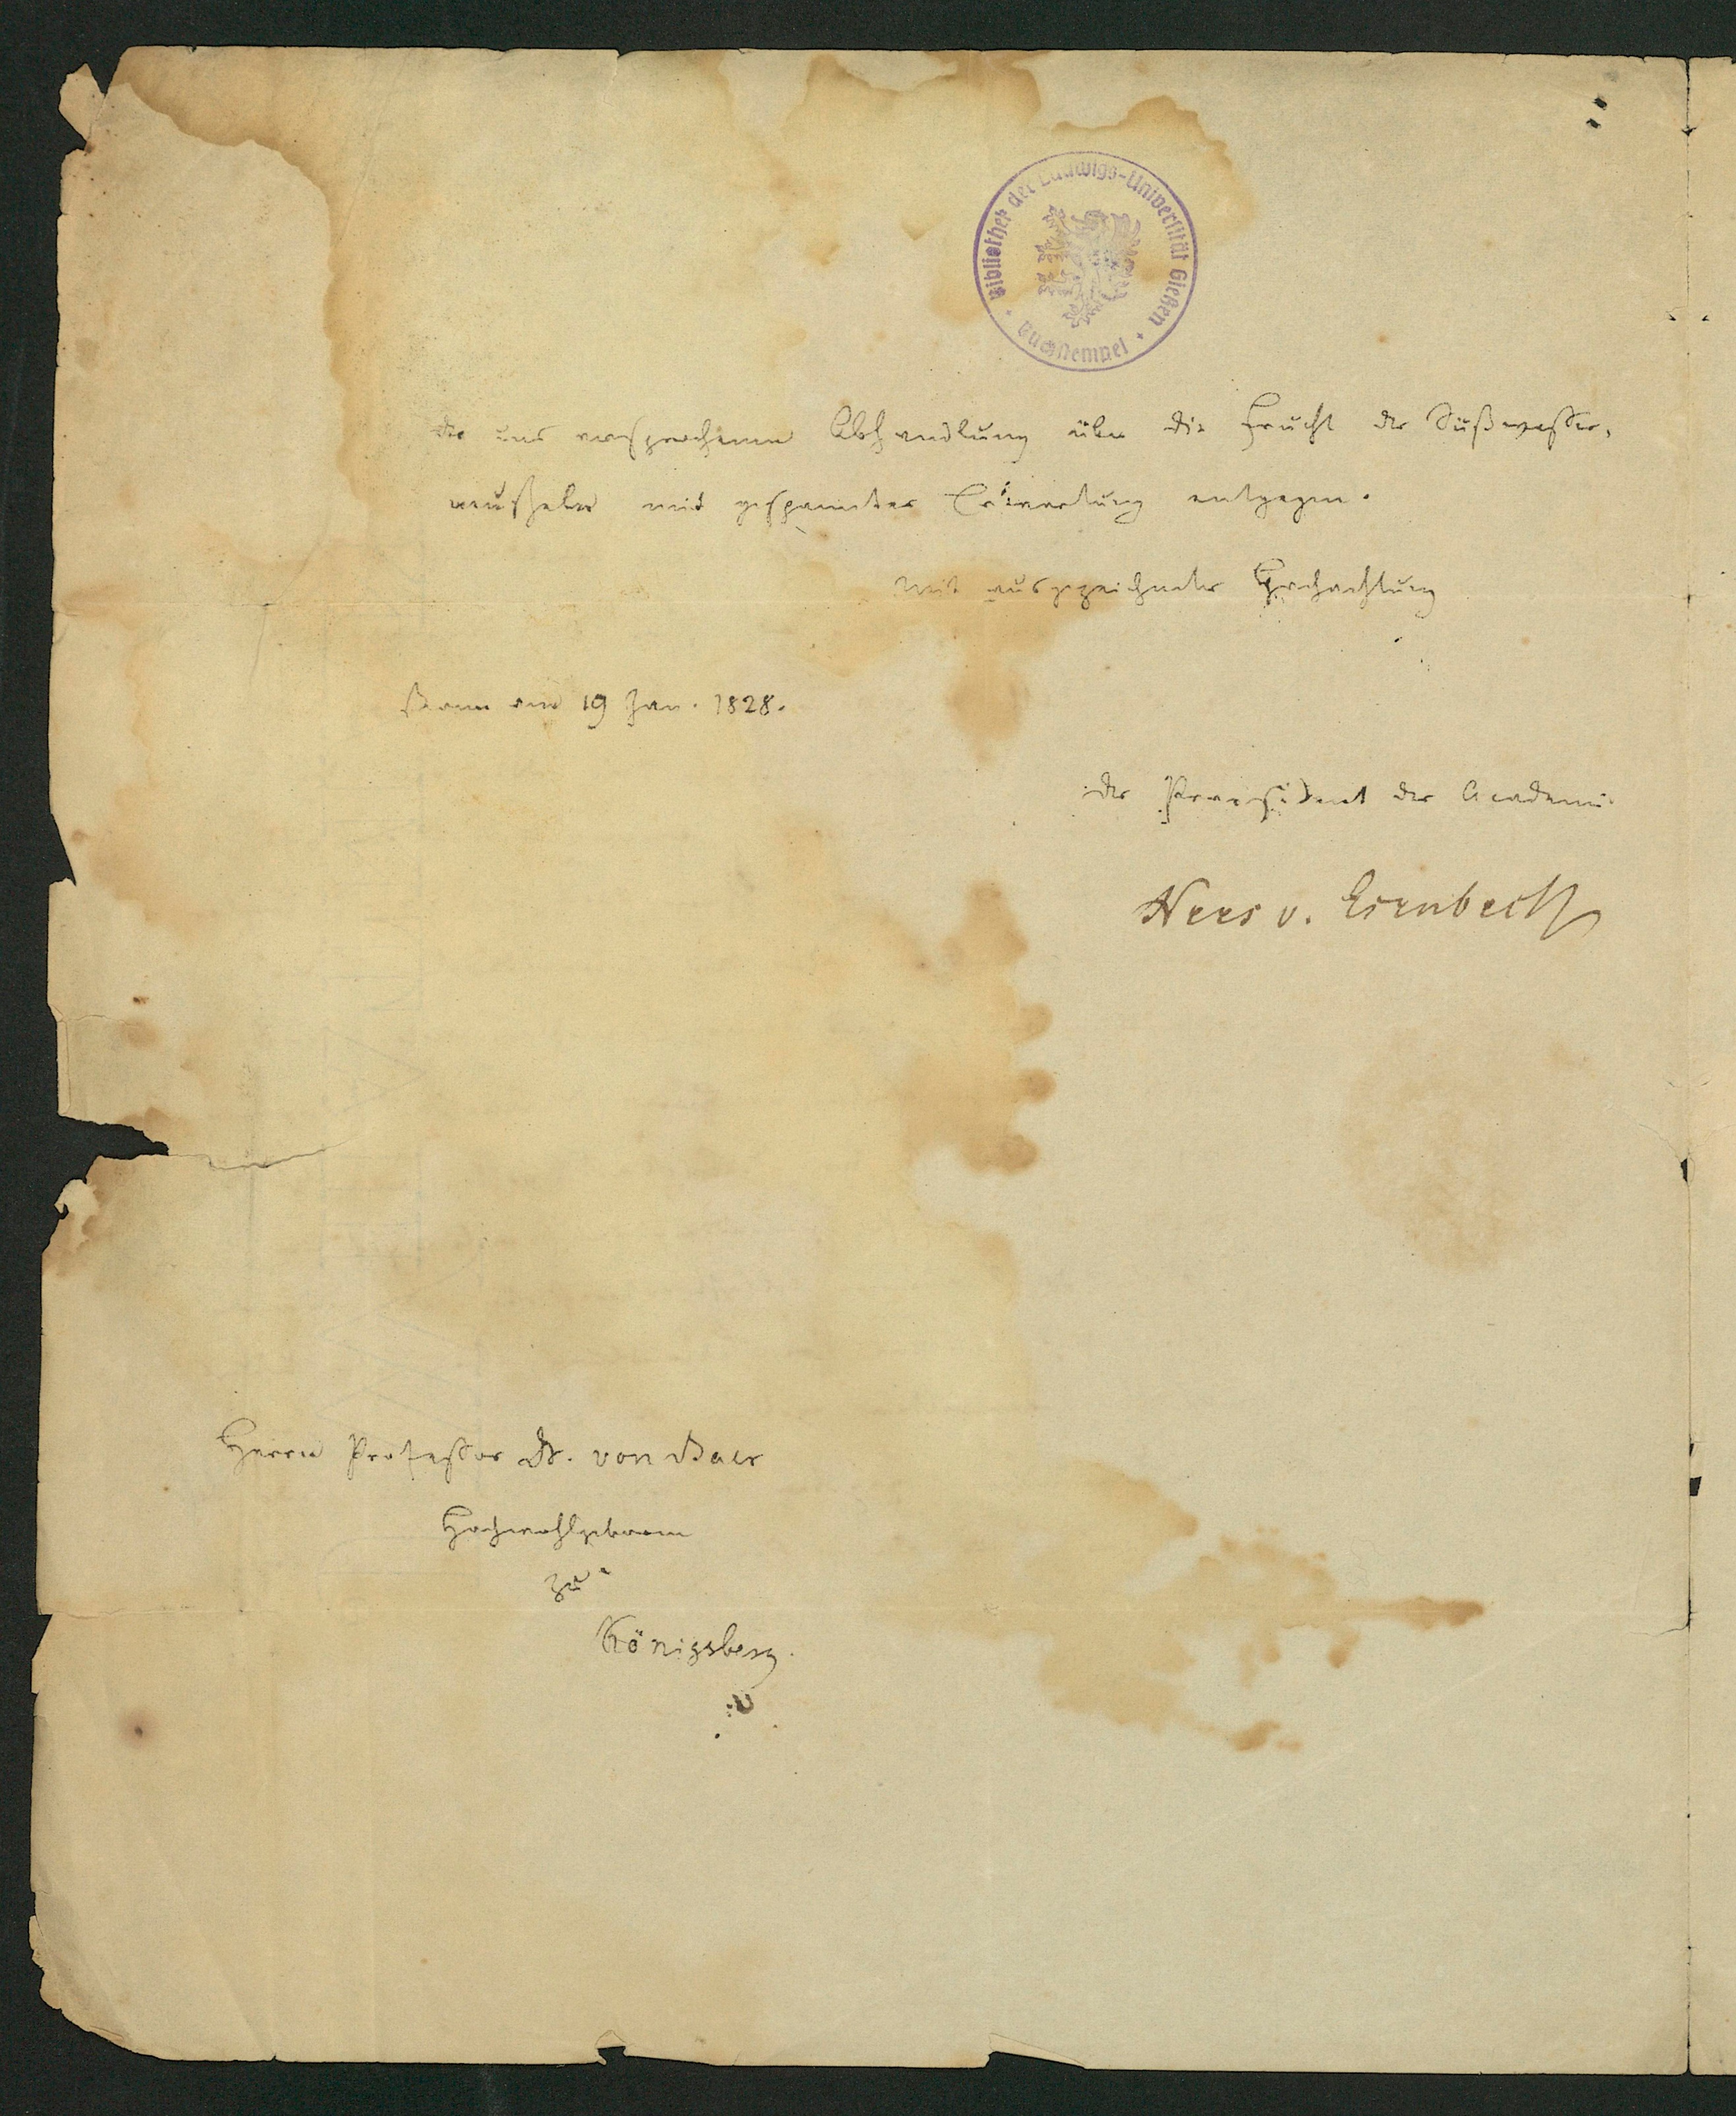 Bibliothek der Ludwigs-Universität Gießen
Buchstempel
der uns versprochenen Abhandlung über die Frucht der Süßwasser-
muscheln mit gespannter Erwartung entgegen.
Mit ausgezeichneter Hochachtung
Bonn am 19 Jan. 1828.
der Praesident der Academie
Nees v. Esenbeck
Herrn Professor Dr. von Baer
Hochwohlgeboren
zu
Königsberg.